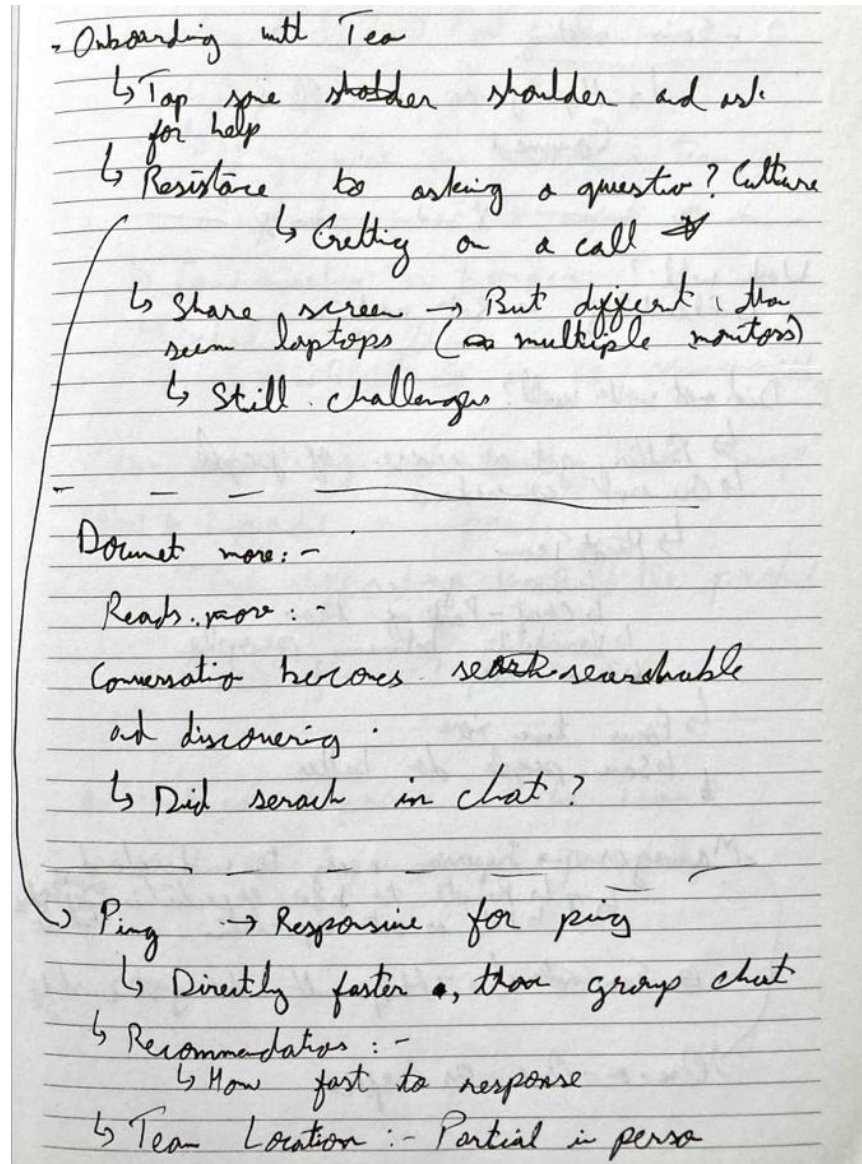 - Onboarding with Tea
↳ Tap some shoulder and ask
for help
↳ Resistance to asking a question? Culture
↳ Getting on a call
↳ Share screen → But different than
seem laptops (multiple monitors)
↳ Still challenges
Documet more: -
Reads more: -
Conversation becomes searchable
and discovering.
↳ Did serach in chat?
↳ Ping → Responsive for ping
↳ Directly faster, than group chat
↳ Recommendations: -
↳ How fast to response
↳ Team Location: - Partial in person